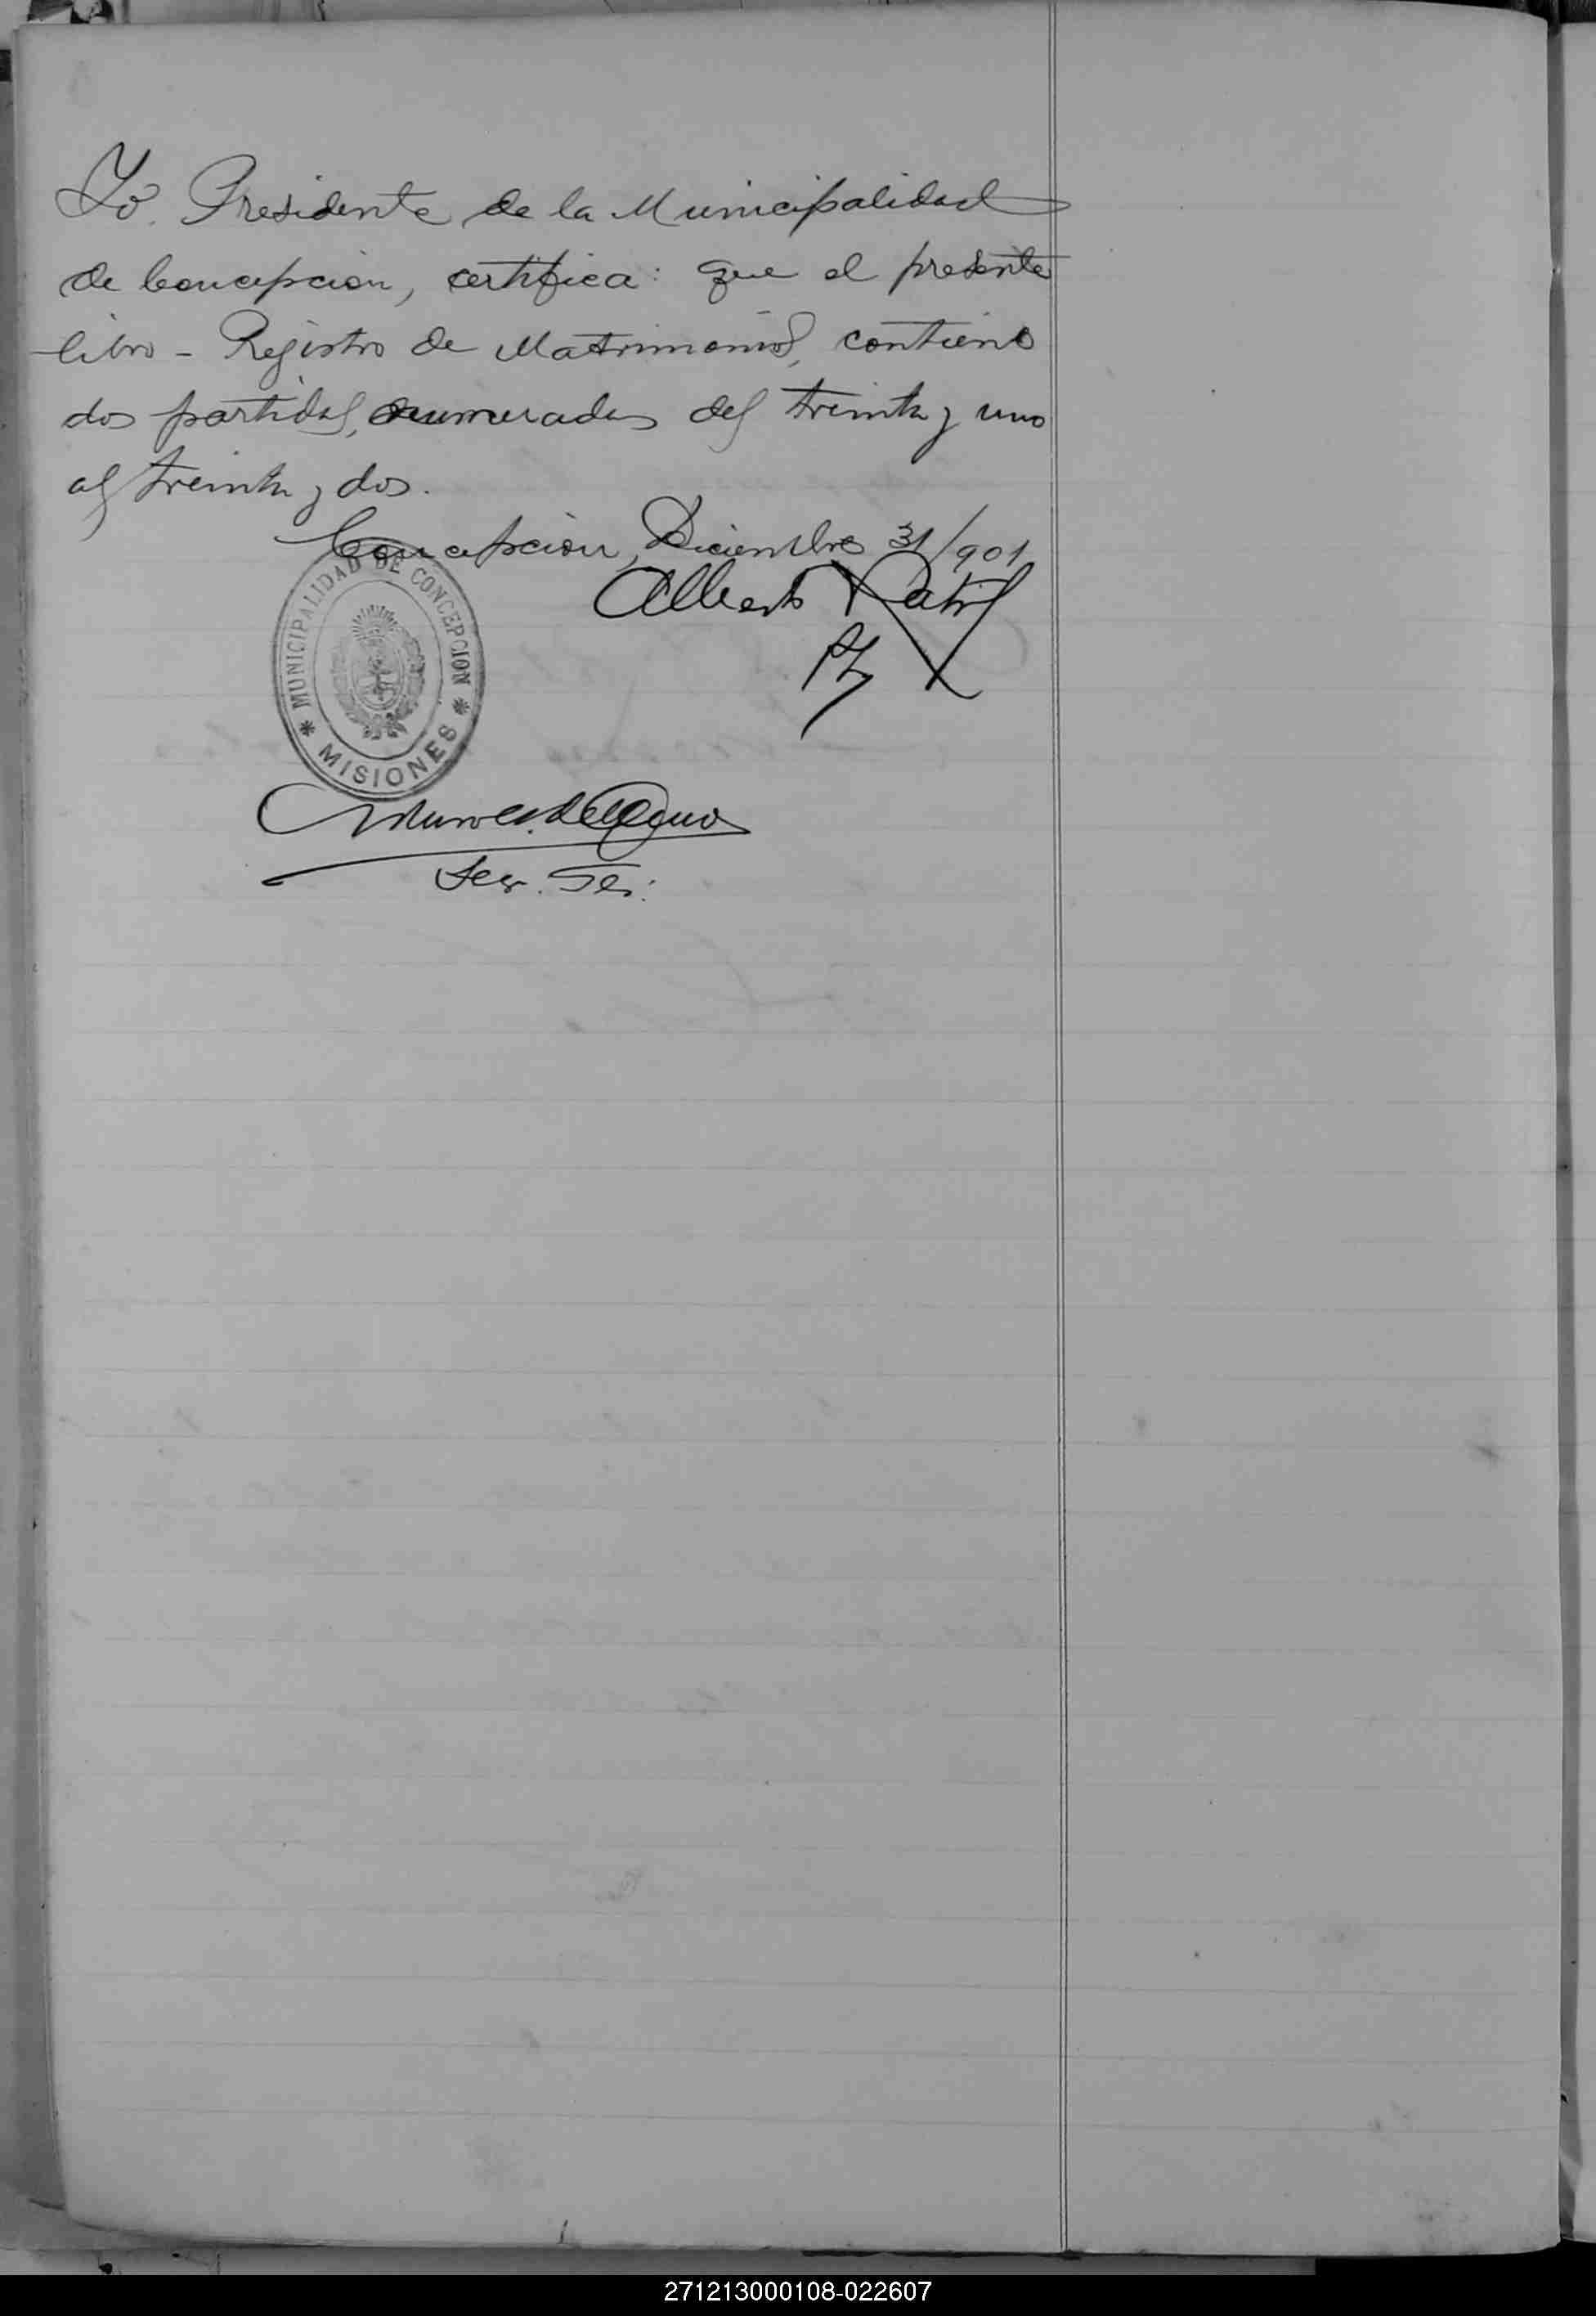 Yo Presidente de la Municipalidad
de Concepcion, certifica: que el presente
libro - Registro de Matrimonios, contiene
dos partidas, enumeradas del treinta y uno
al treinta y dos.
Concepcion, Diciembre 31/901
Alberto
MUNICIPALIDAD DE CONCEPCION
* MISIONES *
Sec.
271213000108-022607